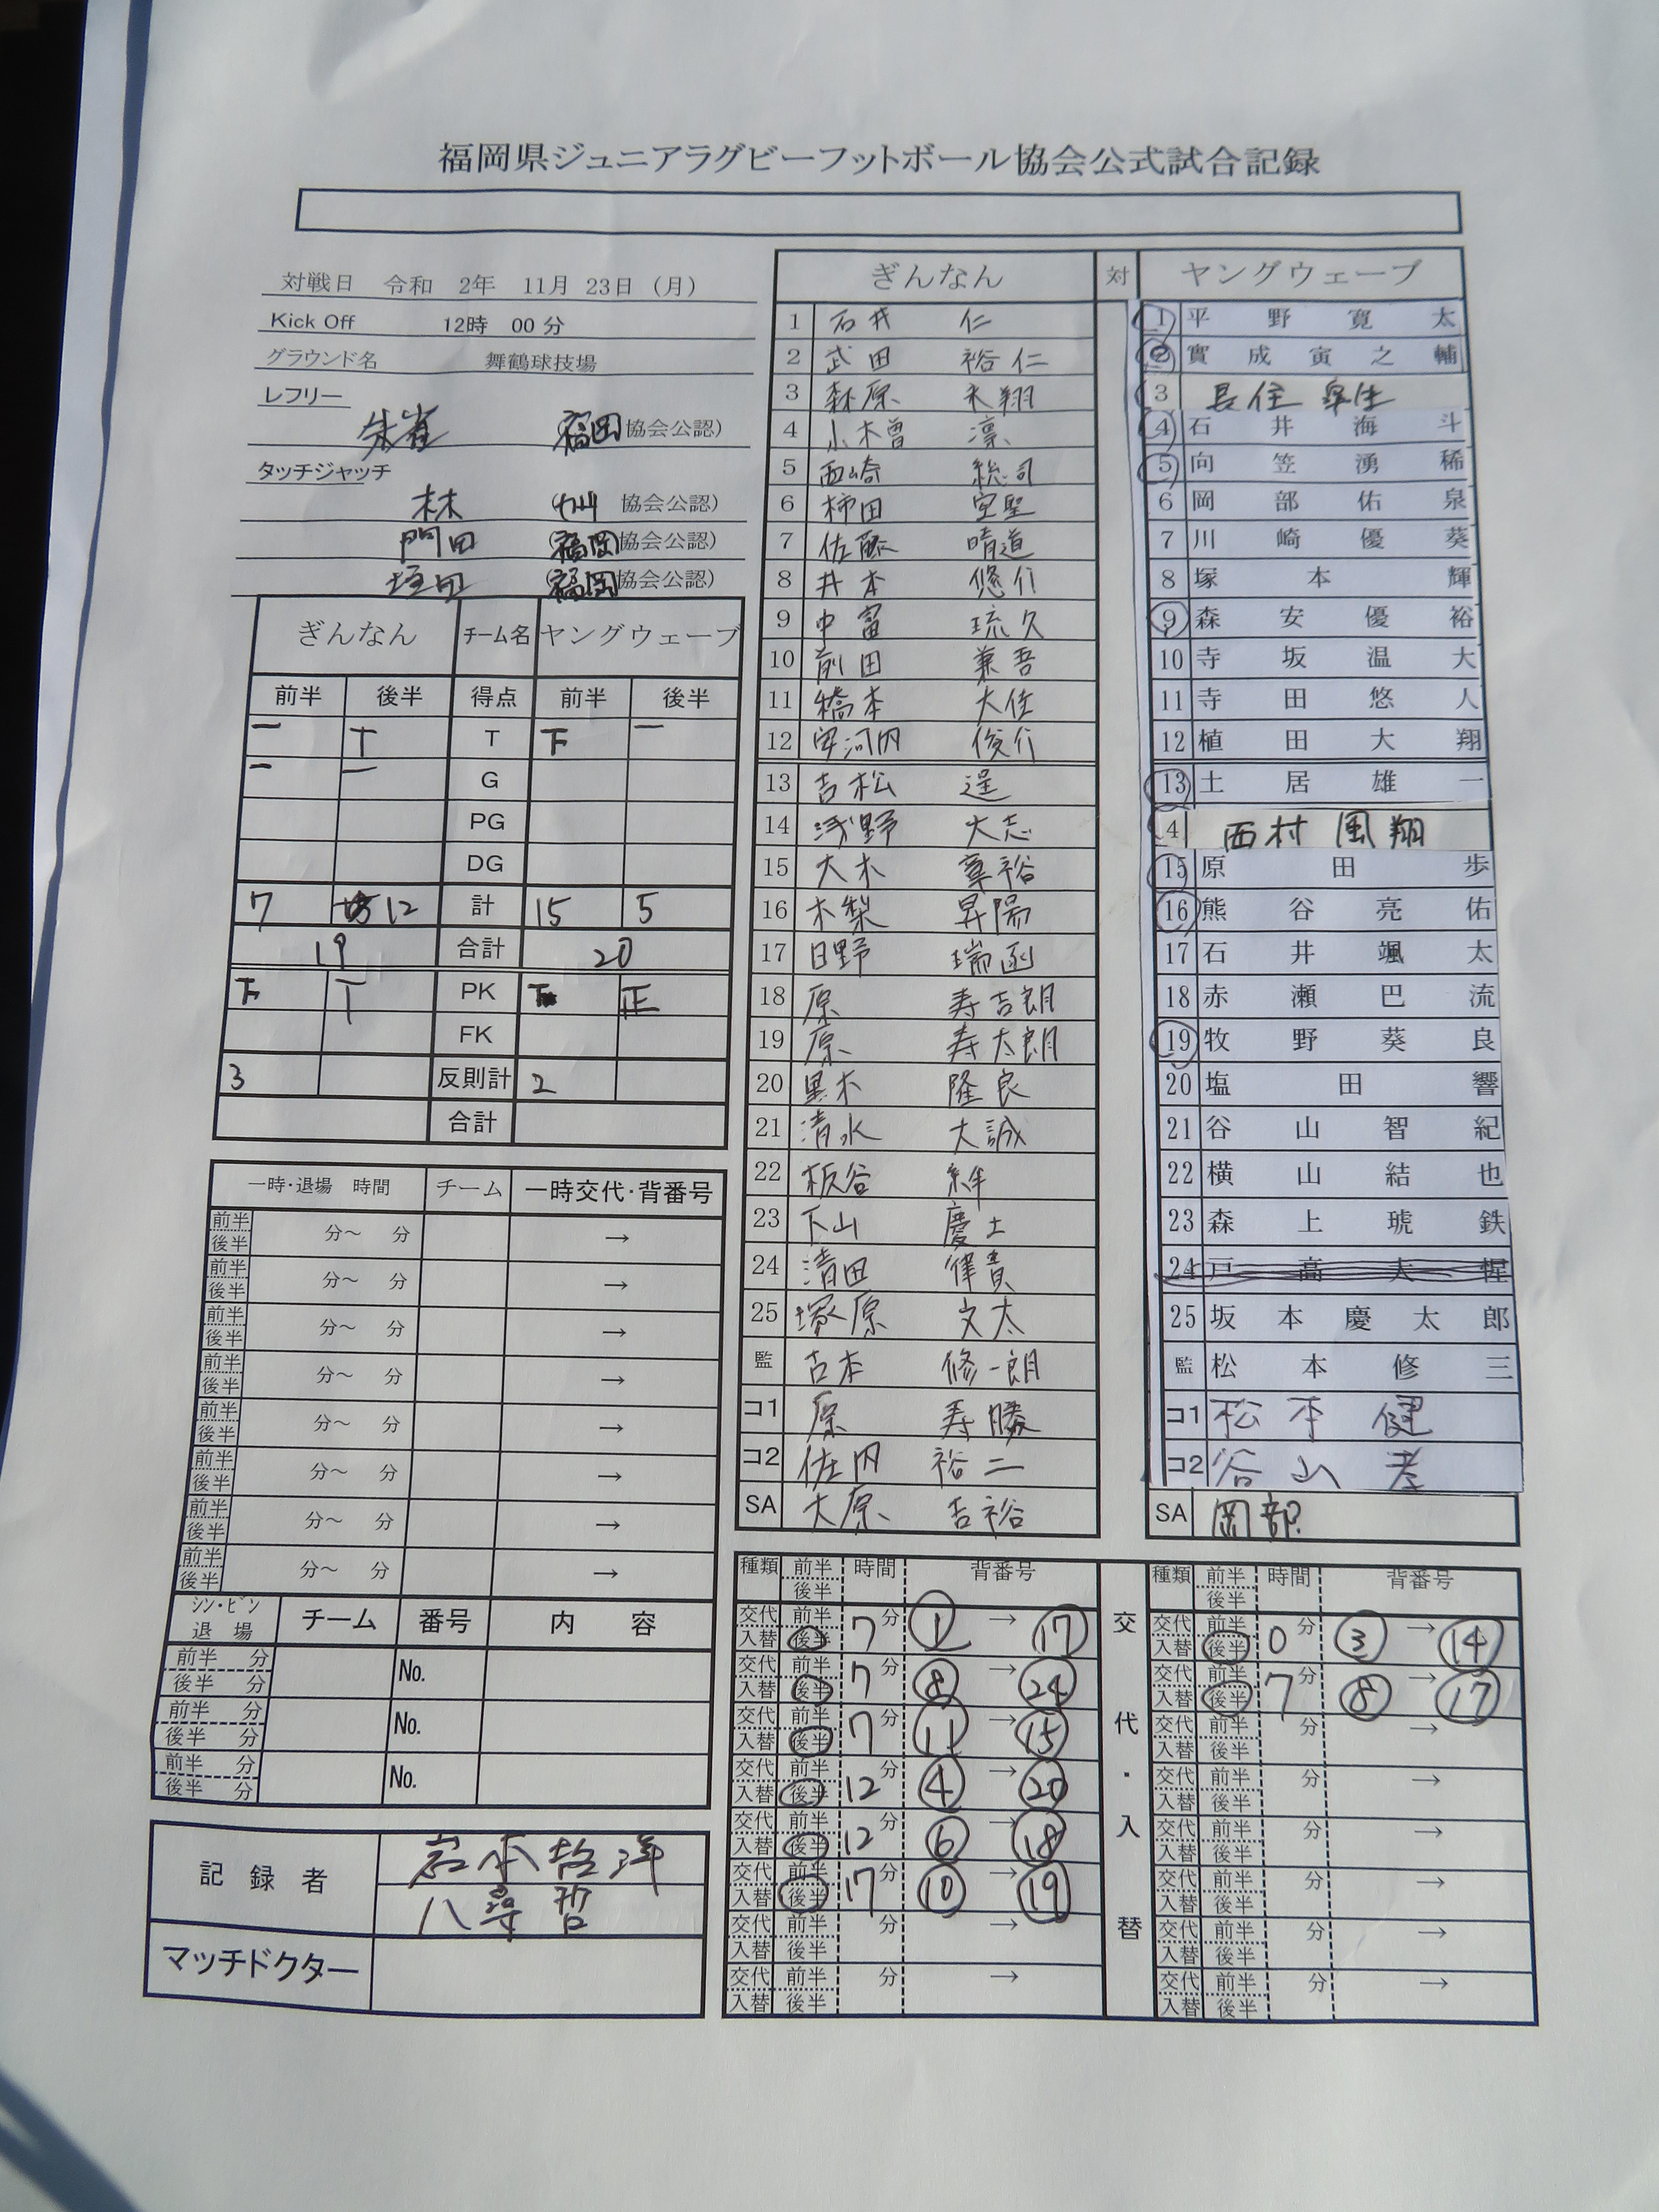 福岡県ジュニアラグビーフットボール協会公式試合記録
対戦日 令和 2年 11月 23日 (月)
Kick Off 12時 00 分
グラウンド名 舞鶴球技場
レフリー
朱雀 (福岡 協会公認)
タッチジャッチ
林 (九州 協会公認)
門田 (福岡 協会公認)
(福岡 協会公認)
ぎんなん チーム名 ヤングウェーブ
前半 後半 得点 前半 後半
一 T T 下 一
一 一 G
PG
DG
7 12 計 15 5
19 合計 20
下 T PK 正
FK
3 反則計 2
合計
一時・退場 時間 チーム 一時交代・背番号
前半 後半 分〜 分 →
前半 後半 分〜 分 →
前半 後半 分〜 分 →
前半 後半 分〜 分 →
前半 後半 分〜 分 →
前半 後半 分〜 分 →
前半 後半 分〜 分 →
前半 後半 分〜 分 →
シン・ビン 退場 チーム 番号 内容
前半 分 後半 分 No.
前半 分 後半 分 No.
前半 分 後半 分 No.
記録者 岩本哲洋
八尋哲
マッチドクター
ぎんなん 対 ヤングウェーブ
1 石井 仁
2 武田 裕仁
3 森原 未翔
4 小木曽 凛
5 西崎 総司
6 柿田 空聖
7 佐藤 晴道
8 井本 悠介
9 中富 琉久
10 前田 兼吾
11 橋本 大佳
12 安河内 俊介
13 吉松 遥
14 浅野 大志
15 大木 章裕
16 木梨 昇陽
17 日野 瑞函
18 原 寿吉朗
19 原 寿太朗
20 黒木 隆良
21 清水 大誠
22 板谷 絆
23 下山 慶士
24 清田 律貴
25 塚原 文太
監 吉本 修一朗
コ1 原 寿勝
コ2 佐内 裕二
SA 大原 吉裕
1 平野寛太
2 實成寅之輔
3 長住 皐生
4 石井海斗
5 向笠湧稀
6 岡部佑泉
7 川崎優葵
8 塚本輝
9 森安優裕
10 寺坂温大
11 寺田悠人
12 植田大翔
13 土居雄一
4 西村 風翔
15 原田歩
16 熊谷亮佑
17 石井颯太
18 赤瀬巴流
19 牧野葵良
20 塩田響
21 谷山智紀
22 横山結也
23 森上琥鉄
24 戸高大惺
25 坂本慶太郎
監 松本修三
コ1 松本 健
コ2 谷山 孝
SA 岡部
種類 前半 後半 時間 背番号
交代 入替 前半 後半 7分 1 → 17
交代 入替 前半 後半 7分 8 → 24
交代 入替 前半 後半 7分 11 → 15
交代 入替 前半 後半 12分 4 → 20
交代 入替 前半 後半 12分 6 → 18
交代 入替 前半 後半 17分 10 → 19
交代 入替 前半 後半 分 →
交代 入替 前半 後半 分 →
交代・入替
種類 前半 後半 時間 背番号
交代 入替 前半 後半 0分 3 → 14
交代 入替 前半 後半 7分 8 → 17
交代 入替 前半 後半 分 →
交代 入替 前半 後半 分 →
交代 入替 前半 後半 分 →
交代 入替 前半 後半 分 →
交代 入替 前半 後半 分 →
交代 入替 前半 後半 分 →